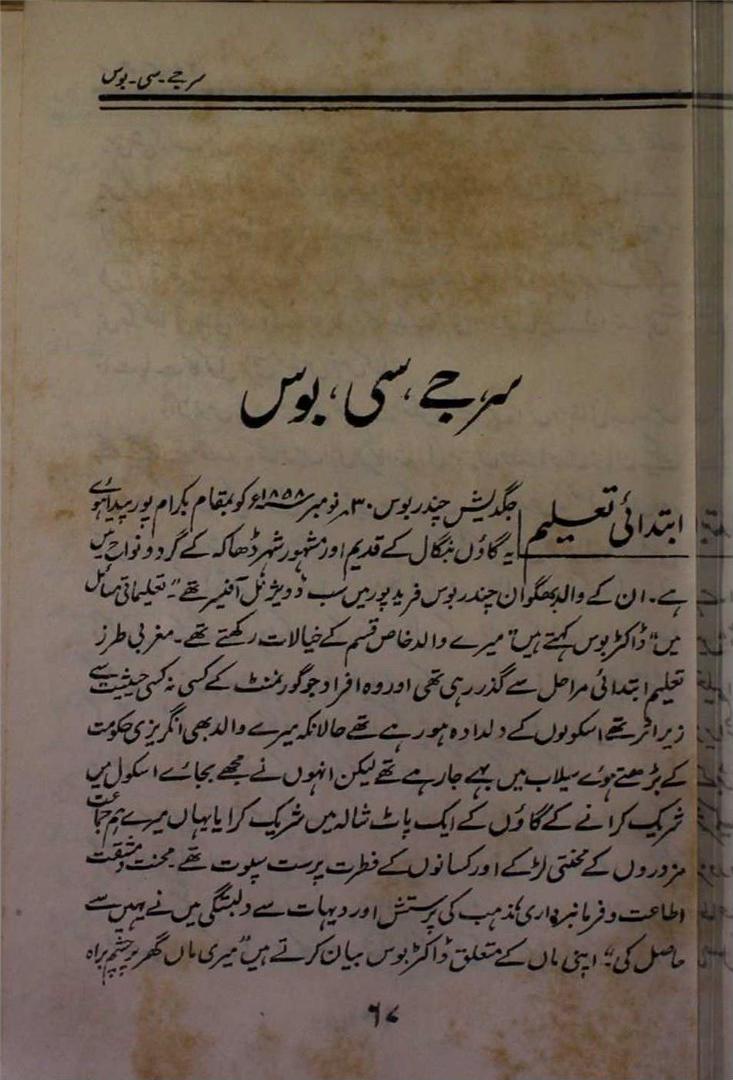 سر جے۔ سی۔ بوس
سر، جے، سی، بوس
ابتدائی تعلیم
جگدیش چندر بوس ۳۰ نومبر ۱۸۵۸ء کو بمقام بکرام پور پیدا ہوئے
یہ گاؤں بنگال کے قدیم اور مشہور شہر ڈھاکہ کے گرد و نواح میں
ہے۔ ان کے والد بھگوان چندر بوس فرید پور میں سب ڈویژنل آفیسر تھے "تعلیماتی مسائل
میں" ڈاکٹر بوس کہتے ہیں "میرے والد خاص قسم کے خیالات رکھتے تھے۔ مغربی طرز
تعلیم ابتدائی مراحل سے گذر رہی تھی اور وہ افراد جو گورنمنٹ کے کسی نہ کسی حیثیت سے
زیر اثر تھے اسکولوں کے دلدادہ ہو رہے تھے حالانکہ میرے والد بھی انگریزی حکومت
کے بڑھتے ہوئے سیلاب میں بہے جا رہے تھے لیکن انہوں نے مجھے بجائے اسکول میں
شریک کرانے کے گاؤں کے ایک پاٹ شالہ میں شریک کرایا یہاں میرے ہم جماعت
مزوروں کے محنتی لڑکے اور کسانوں کے فطرت پرست سپوت تھے۔ محنت و مشقت
اطاعت و فرمانبرداری، مذہب کی پرستش اور دیہات سے دلبستگی میں نے یہیں سے
حاصل کی"۔ اپنی ماں کے متعلق ڈاکٹر بوس بیان کرتے ہیں "میری ماں گھر پر چشم براہ
۶۷